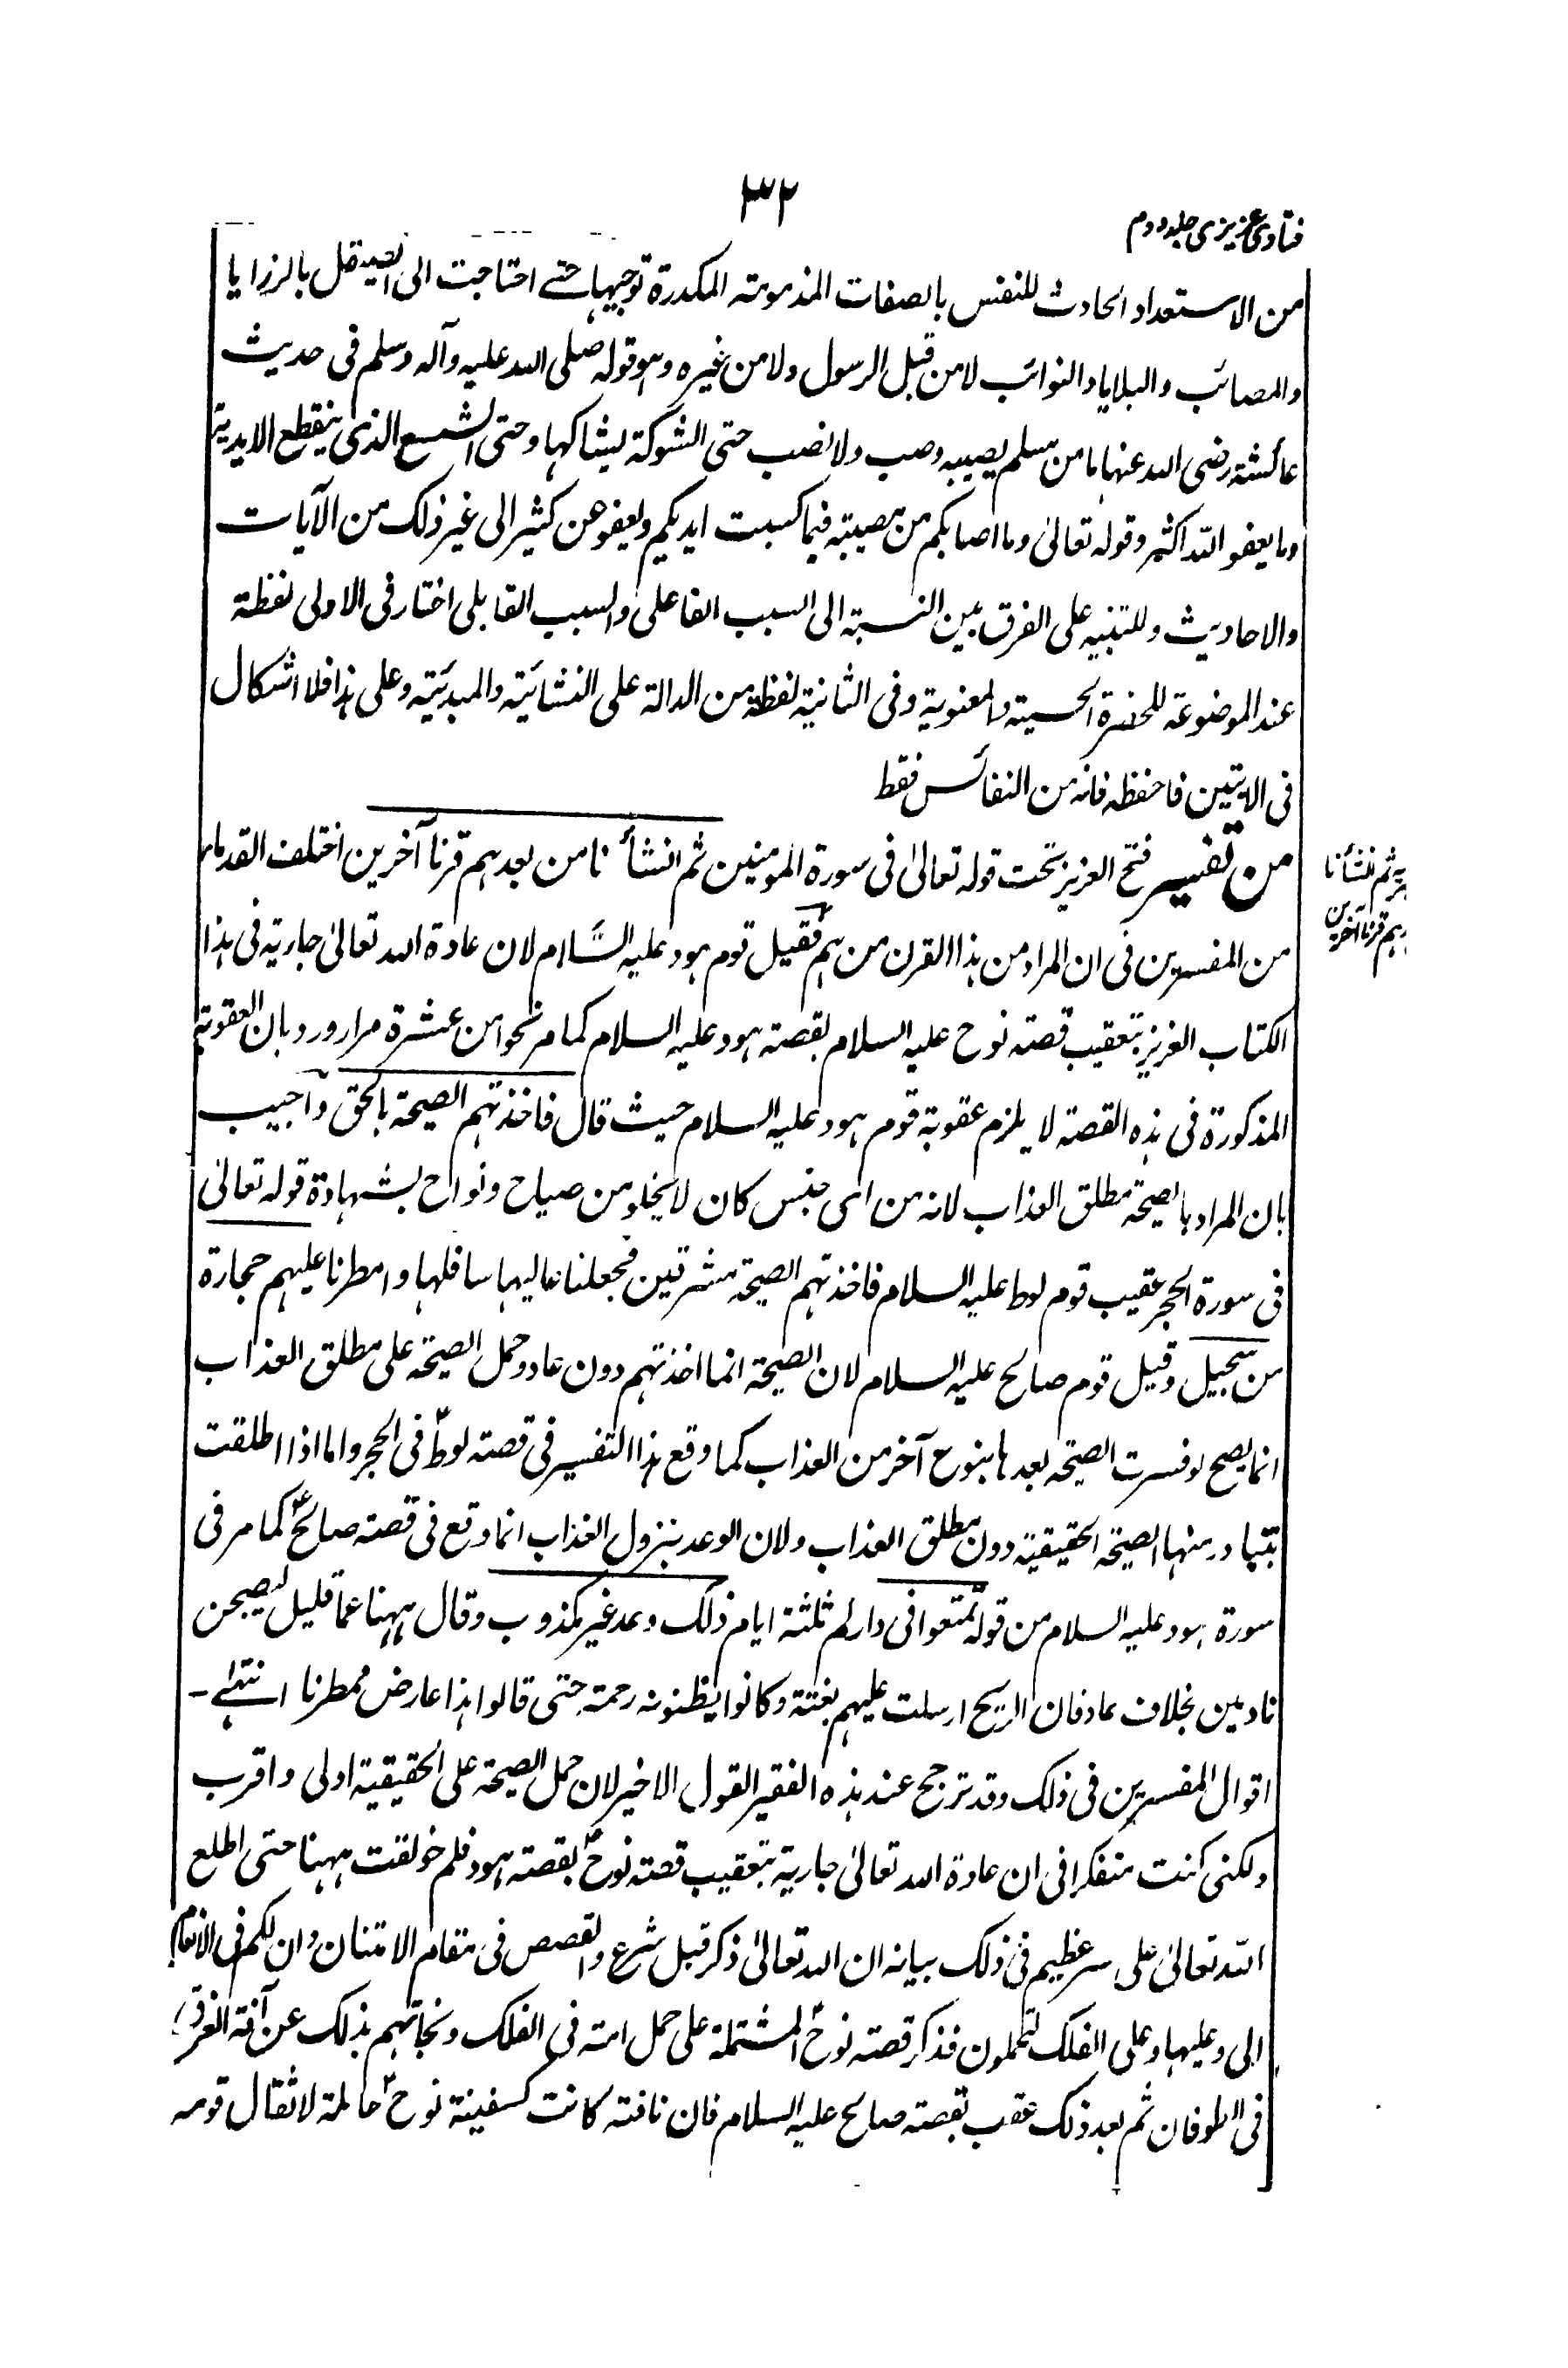 ٣٢
فتاوی عزیزی جلد دوم
من الاستعداد الحادث للنفس بالصفات المذمومته المكدرة توجیهها حتے احتاجت الی الصیقل بالرزایا
والمصائب والبلایا والنوائب لا من قبل الرسول ولا من غیره وهو قوله صلی الله علیه وآله وسلم فی حدیث
عائشة رضی الله عنها ما من مسلم یصیبه وصب ولا نصب حتی الشوكة یشاكها وحتی الشسع الذی ینقطع الا بذنب
وما یعفو الله اكثر وقوله تعالیٰ وما اصابكم من مصیبته فبما كسبت ایدیكم ویعفو عن كثیر الی غیر ذلك من الآیات
والاحادیث وللتنبیه علی الفرق بین النسبته الی السبب الفاعلی والسبب القابلی اختار فی الاولی لفظة
عند الموضوعة للحضرة الحسیته والمعنویة وفی الثانیة لفظة من الدالة علی النشائیته والمبدئیته وعلی هذا فلا اشكال
فی الایتین فاحفظه فانه من النفائس فقط
من تفسیر فتح العزیز تحت قوله تعالیٰ فی سورة المومنین ثم انشأنا من بعدهم قرناً آخرین اختلف القدماء
من المفسرین فی ان المراد من هذا القرن من هم فقیل قوم هود علیه السلام لان عادة الله تعالیٰ جاریته فی هذا
الكتاب العزیز بتعقیب قصته نوح علیه السلام بقصته هود علیه السلام كما مر نحوا من عشرة مرار ورد بان العقوبة
المذكورة فی هذه القصته لا یلزم عقوبة قوم هود علیه السلام حیث قال فاخذتهم الصیحة بالحق واجیب
بان المراد بالصیحة مطلق العذاب لانه من ای جنس كان لا یخلو من صیاح ونواح بشهادة قوله تعالیٰ
فی سورة الحجر عقیب قوم لوط علیه السلام فاخذتهم الصیحة مشرقین فجعلنا عالیها سافلها وامطرنا علیهم حجارة
من سجیل وقیل قوم صالح علیه السلام لان الصیحة انما اخذتهم دون عاد وحمل الصیحة علی مطلق العذاب
انما یصح لو فسرت الصیحة بعدها بنوع آخر من العذاب كما وقع هذا التفسیر فی قصته لوطؑ فی الحجر واما اذا اطلقت
یتبادر منها الصیحة الحقیقیة دون مطلق العذاب ولان الوعد بنزول العذاب انما وقع فی قصته صالحؑ كما مر فی
سورة هود علیه السلام من قوله تمتعوا فی داركم ثلثة ایام ذلك وعد غیر مكذوب وقال ههنا عما قلیل لیصبحن
نادمین بخلاف عاد فان الریح ارسلت علیهم بغتة وكانوا یظنونه رحمة حتی قالوا هذا عارض ممطرنا انتهٰے۔
اقوال المفسرین فی ذلك وقد ترجح عند هذه الفقیر القول الاخیر لان حمل الصیحة علی الحقیقیة اولی واقرب
ولكنی كنت متفكرا فی ان عادة الله تعالیٰ جاریة بتعقیب قصته نوحؑ بقصته هود فلم خولفت ههنا حتی اطلع
الله تعالیٰ علی سر عظیم فی ذلك بیانه ان الله تعالیٰ ذكر قبل شرع والقصص فی مقام الامتنان وان لكم فی الانعام
الی وعلیها وعلی الفلك تحملون فذكر قصته نوحؑ المشتملة علی حمل امته فی الفلك ونجاتهم بذلك عن آفة الغرق
فی الطوفان ثم بعد ذلك عقب بقصته صالح علیه السلام فان ناقته كانت كسفینة نوحؑ حاملة لاثقال قومه
یه ثم انشأنا
هم قرناً آخرین